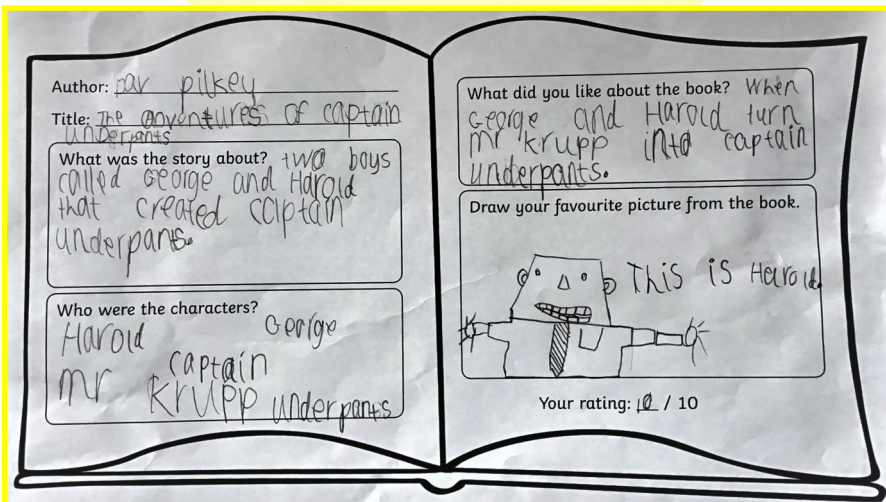 Author: Dav pilkey
Title: The Adventures of captain
underpants
What was the story about? two boys
called George and Harold
that created captain
underpants.
Who were the characters?
Harold George
captain
mr Krupp underpants
What did you like about the book? When
George and Harold turn
mr krupp into captain
underpants.
Draw your favourite picture from the book.
This is Harold.
Your rating: 10 / 10